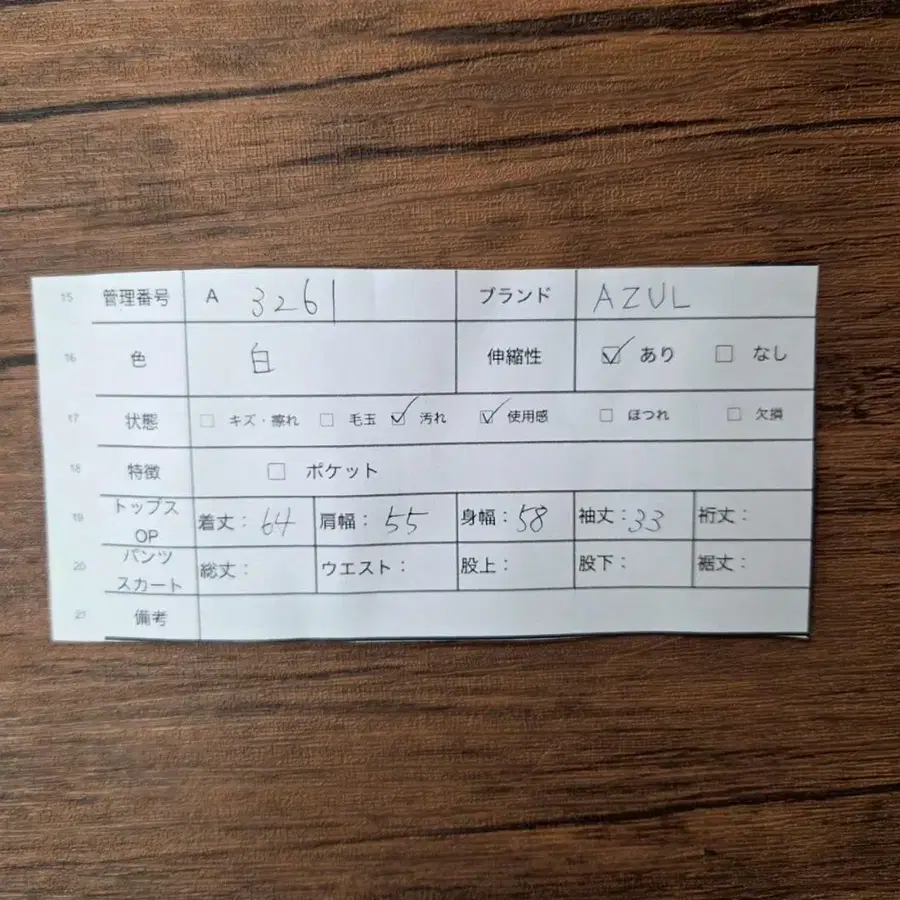 15 管理番号 A 3261 ブランド AZUL
16 色 白 伸縮性 ☑ あり ☐ なし
17 状態 ☐ キズ・擦れ ☐ 毛玉 ☑ 汚れ ☑ 使用感 ☐ ほつれ ☐ 欠損
18 特徴 ☐ ポケット
19 トップス OP 着丈: 64 肩幅: 55 身幅: 58 袖丈: 33 裄丈:
20 パンツ スカート 総丈: ウエスト: 股上: 股下: 裾丈:
21 備考